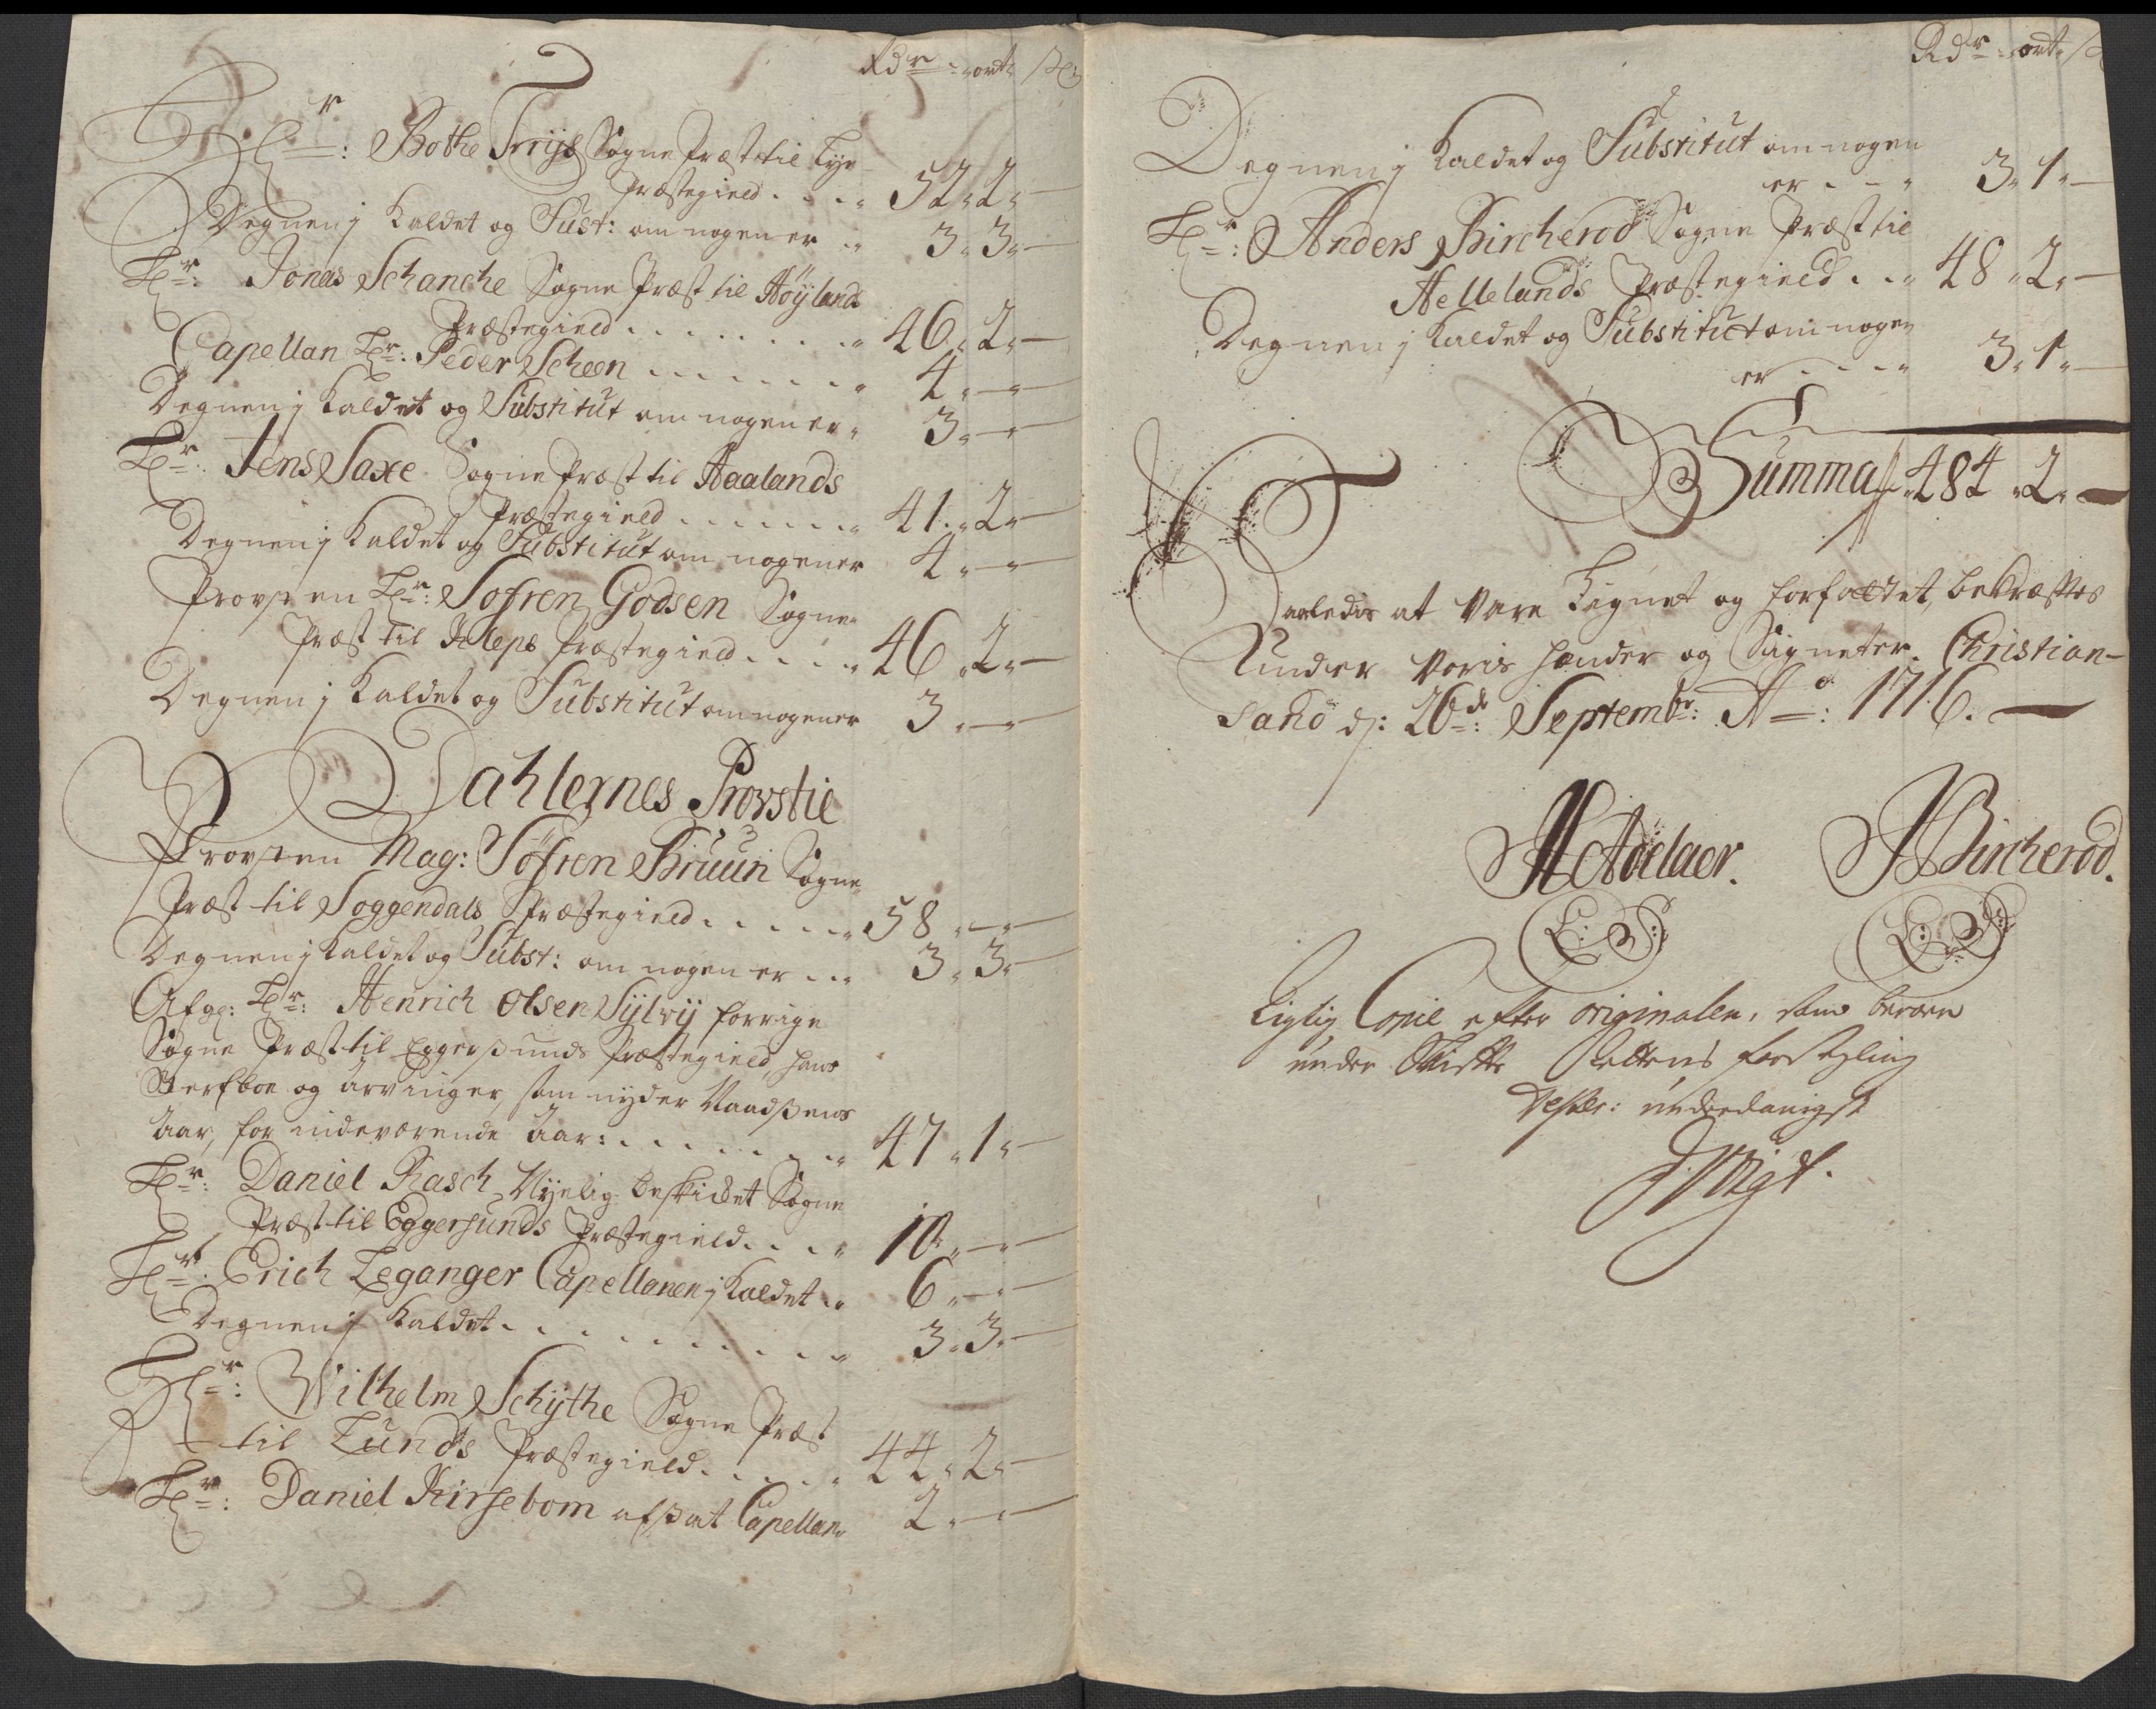 Rdr ort ß
Hr: Bothe Friis Sogne Præst til Lye
Præstegield . . . 52 „ 2 „ —
Degnen j Kaldet og Sust: om nogen er . . 3 „ 3 „ —
Hr: Jonas Schanche Sogne Præst til Høylands
Præstegield . . . . . . . . . 46 „ 2 „ —
Capellan Hr: Peder Scheen . . . . . . . . 4 „ — „
Degnen j Kaldet og Substitut om nogen er „ 3 „ — „
Hr: Jens Saxe Sogne Præst til Haalands
Præstegield . . . . . . . 41 „ 2 „ —
Degnen j Kaldet og Substitut om nogen er 4 „ — „
Provsten Hr: Sofren Godsen Sogne
Præst til Kleps Præstegield . . . . 46 „ 2 „ —
Degnen j Kaldet og Substitut om nogen er 3 „ — „
Dahlernes Provstie
Provsten Mag: Söfren Bruun Sogne
Præst til Soggendals Præstegield . . . . . 58 „ — „
Degnen j Kaldet og Subst: om nogen er . . . 3 „ 3 „ —
Afge: Hr: Henrich Olsen Sylvij forrige
Sogne Præst til Eggersunds Præstegield, hans
Sterfboe og arvinger, som nyder Naadsens
Aar, for indeværende Aar: . . . . . . . 47 „ 1 „ —
Hr: Daniel Rasch Nyelig beskicket Sogne
Præst til Eggersunds Præstegield . . . „ 10 „ — „
Hr: Erich Leganger Capellanen j Kaldet . „ 6 „ — „
Degnen j Kaldet . . . . . . . . . . . „ 3 „ 3 „ —
Hr: Wilhelm Schythe Sogne Præst
til Lunds Præstegield . . . . . 44 „ 2 „ —
Hr: Daniel Kirsebom afsat Capellan „ 2 „ — „
Rdr ort ß
Degnen j Kaldet og Substitut om nogen
er . . . „ 3 „ 1 „ —
Hr: Anders Bircherod Sogne Præst til
Hellelands Præstegield . . „ 48 „ 2 „ —
Degnen j Kaldet og Substitut om nogen
er . . . . „ 3 „ 1 „ —
Summa „ 484 „ 2 „ —
Saaledis at Være Lignet og forfattet, bekræftes
Under Voris hænder og Signeter. Christian-
sand d: 26de: Septembr: Ao: 1716. —
H Adelaer. J Bircherod.
L: S: L: S:
Rigtig Copie efter originalen, som beroer
under Rettens forsegling
Tester: underdanigst